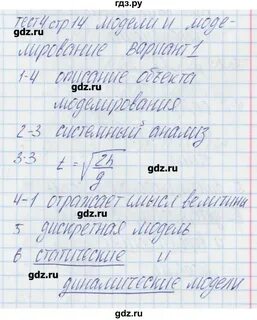 гдз.ру
Тест4 стр14 модели и моде-
лирование вариант 1
1-4 описание объекта
моделирования
гдз.ру
2-3 системный анализ
гдз.ру
3-3 t = √2h/g
гдз.ру
4-1 отражает смысл величины
гдз.ру
5 дискретная модель
гдз.ру
6 статические и
гдз.ру
динамические модели
гдз.ру